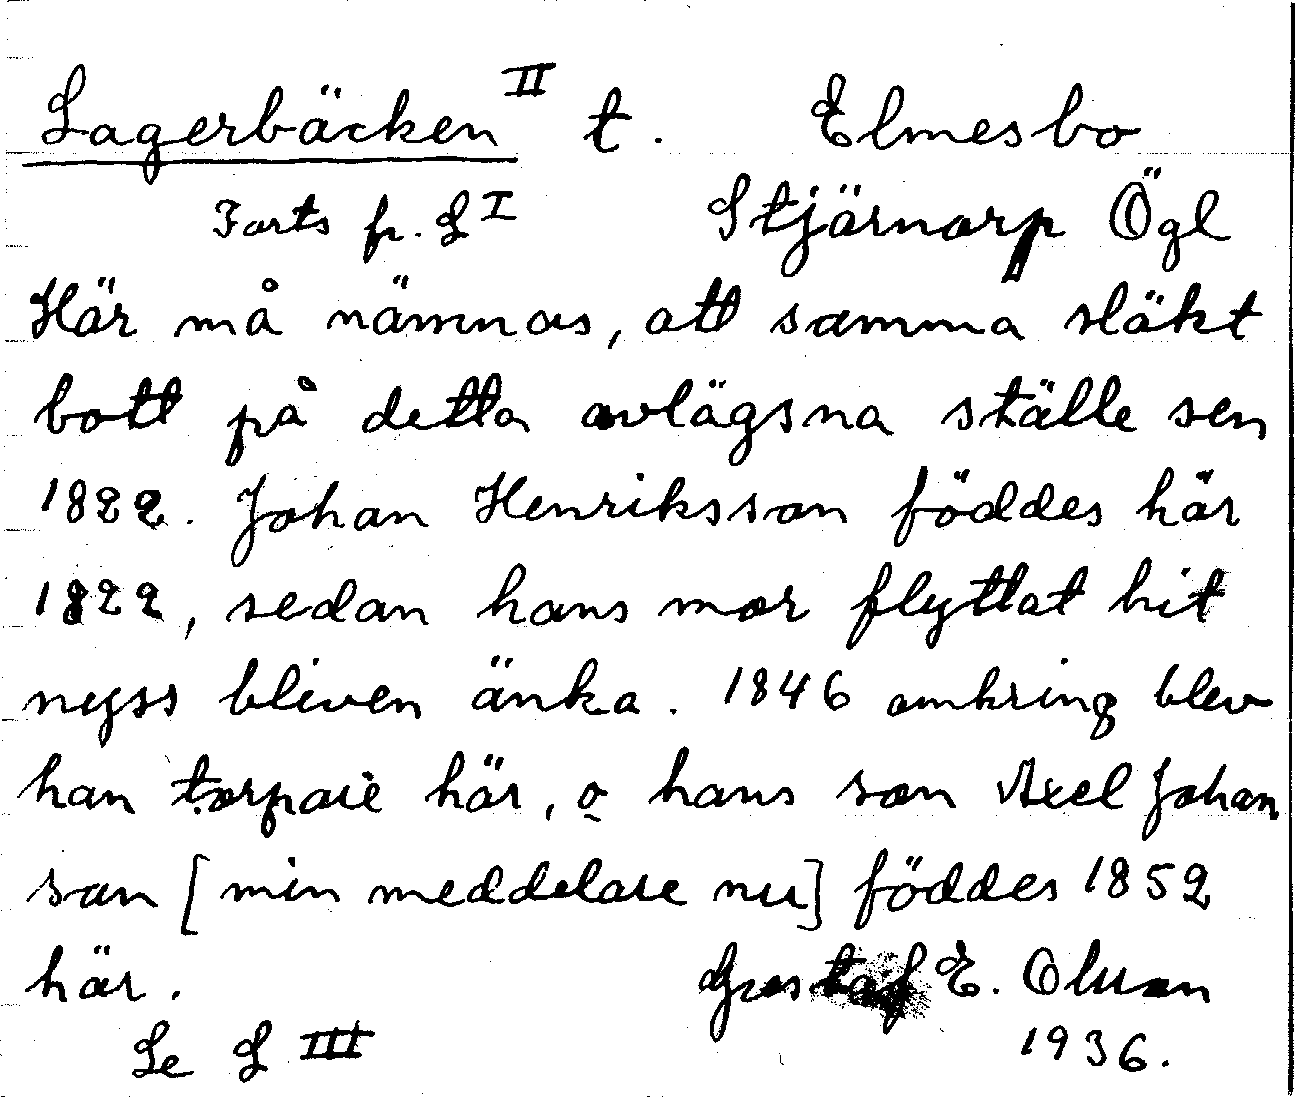 Lagerbäcken II t. Elmesbo
Forts fr. L I Stjärnorp Ögl
Här må nämnas, att samma släkt
bott på detta avlägsna ställe sen
1822. Johan Henriksson föddes här
1822, sedan hans mor flyttat hit
nyss bliven änka. 1846 omkring blev
han torpare här, o hans son Axel Johan
son [min meddelare nu] föddes 1852
här. Gustaf E. Olsson
Se L III 1936.